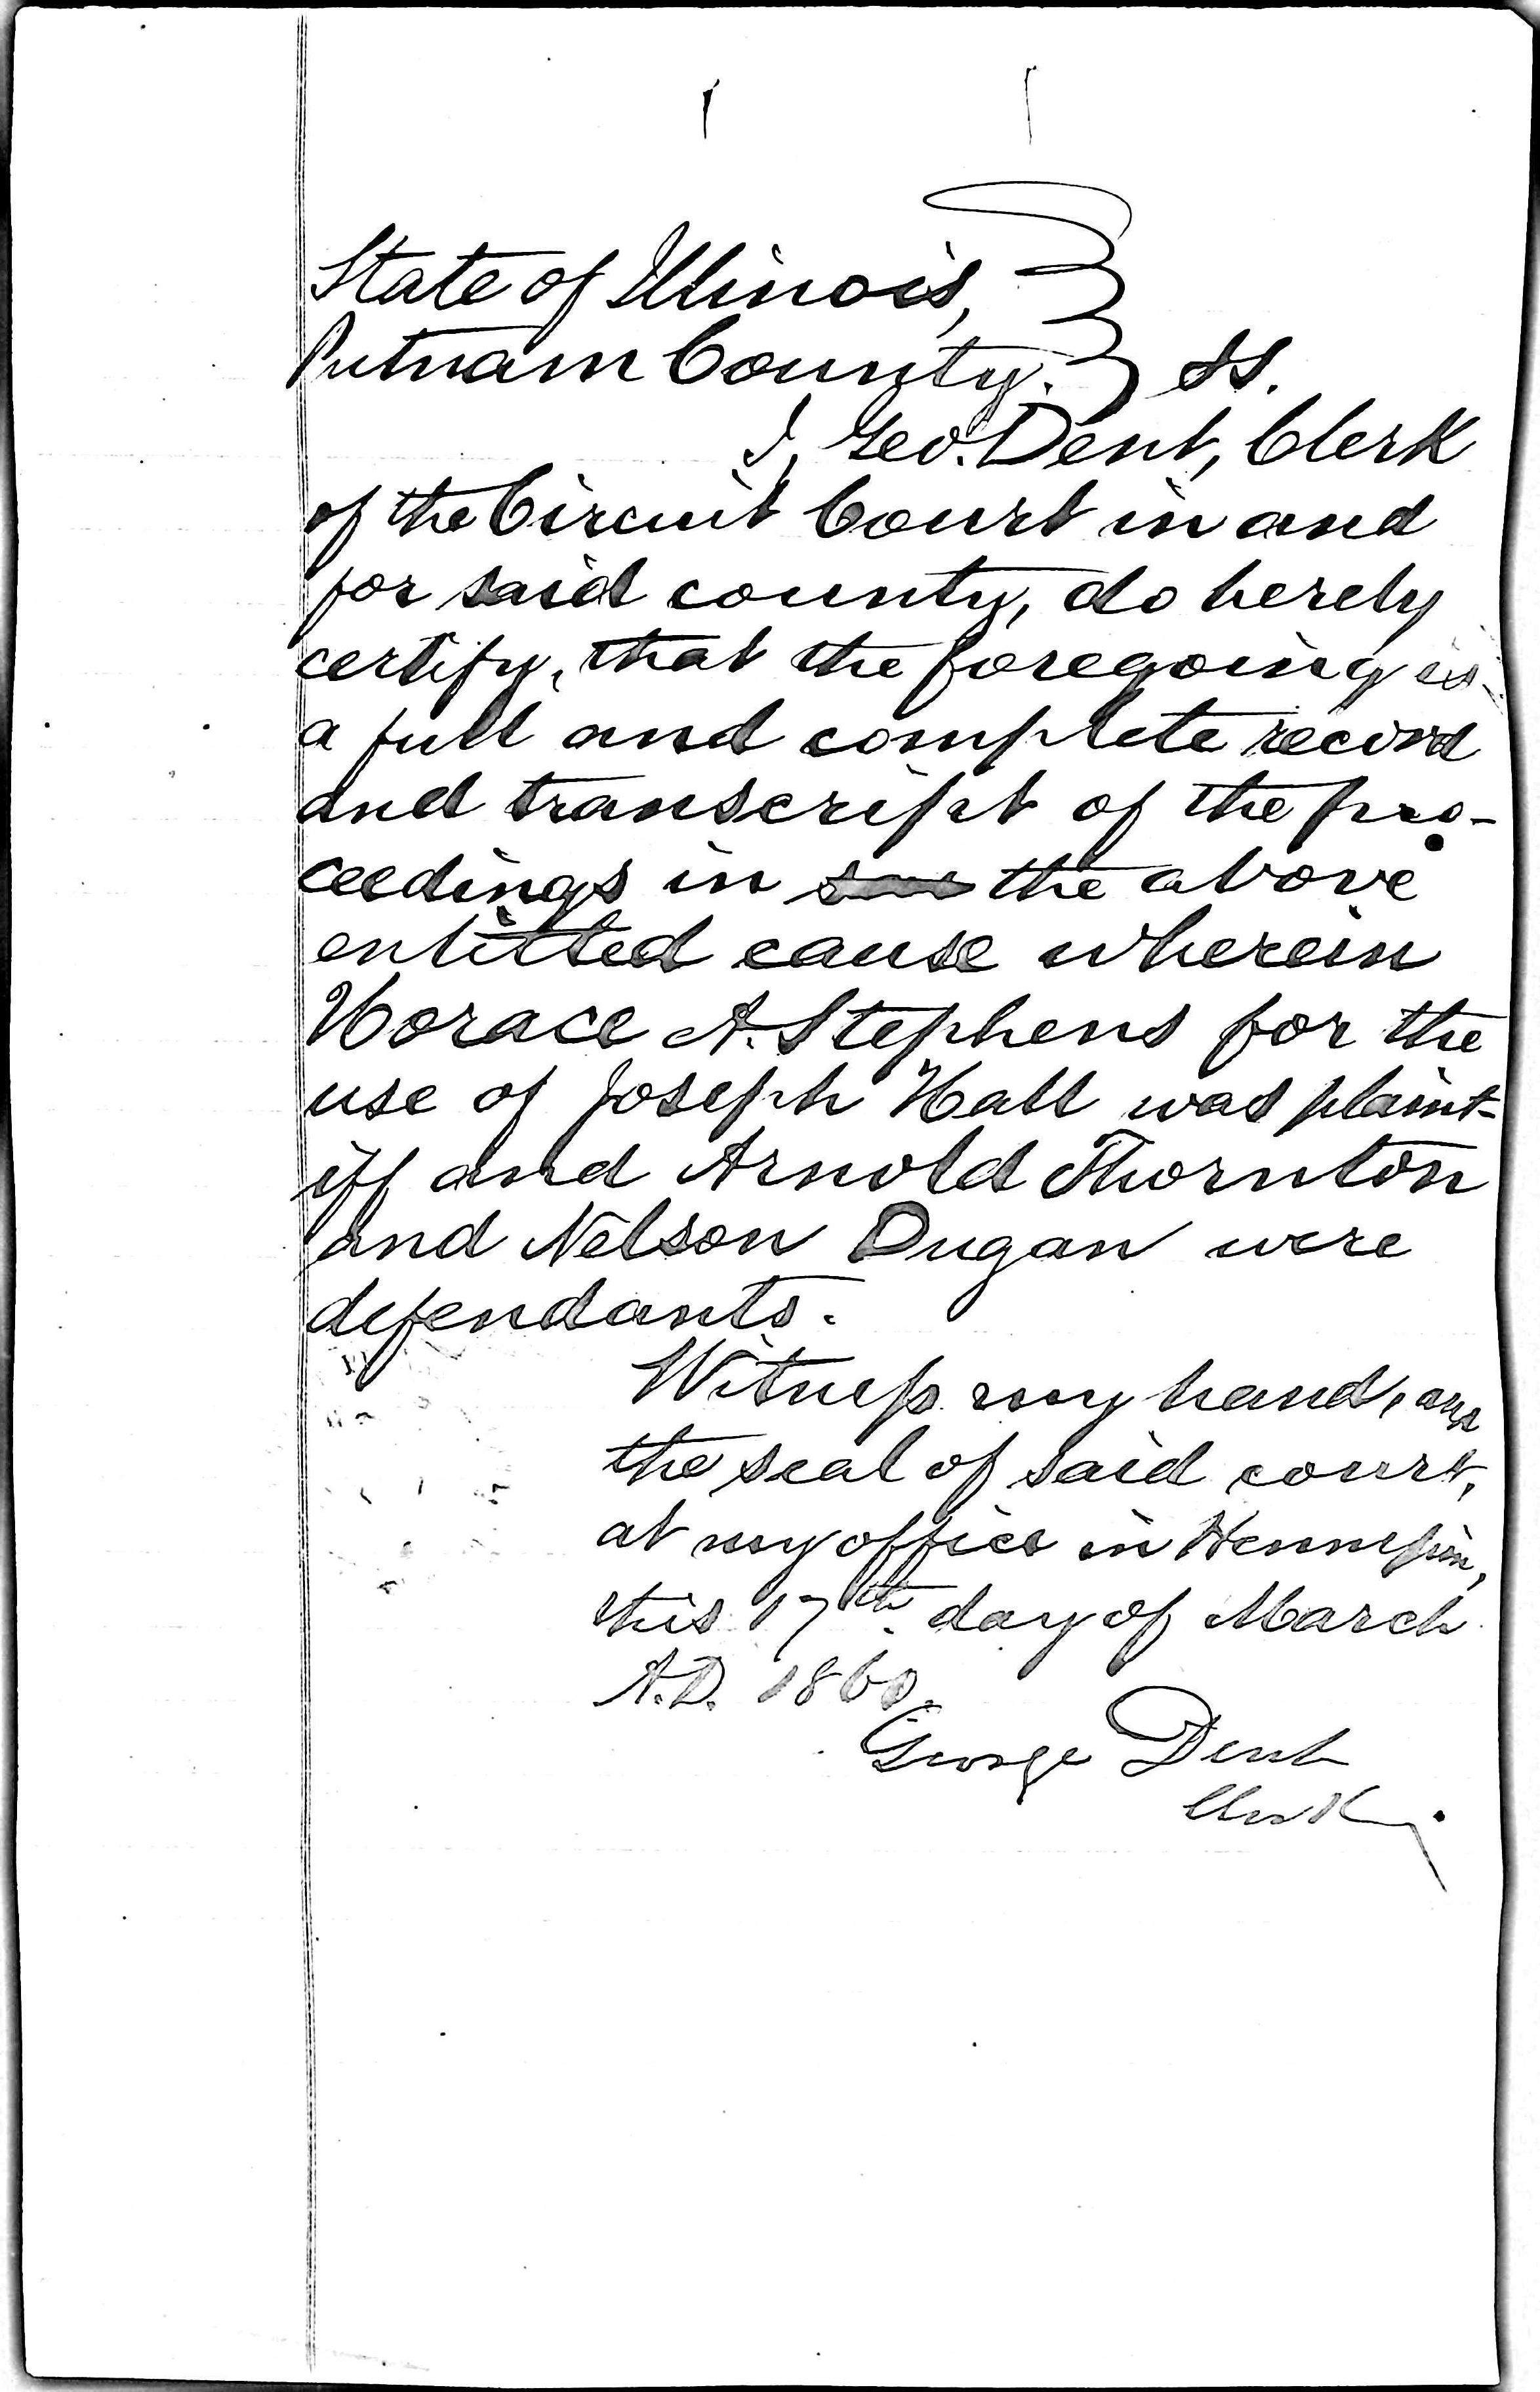 State of Illinois,
Putnam County. } ss.
I, Geo. Dent, Clerk
of the Circuit Court in and
for said county, do hereby
certify, that the foregoing is
a full and complete record
and transcript of the pro-
ceedings in the above
entitled cause wherein
Horace A. Stephens for the
use of Joseph Hall was plaint-
iff and Arnold Thornton
and Nelson Dugan were
defendants.
Witness my hand, and
the seal of said court,
at my office in Hennepin,
this 17th day of March
A.D. 1860.
George Dent
Clerk